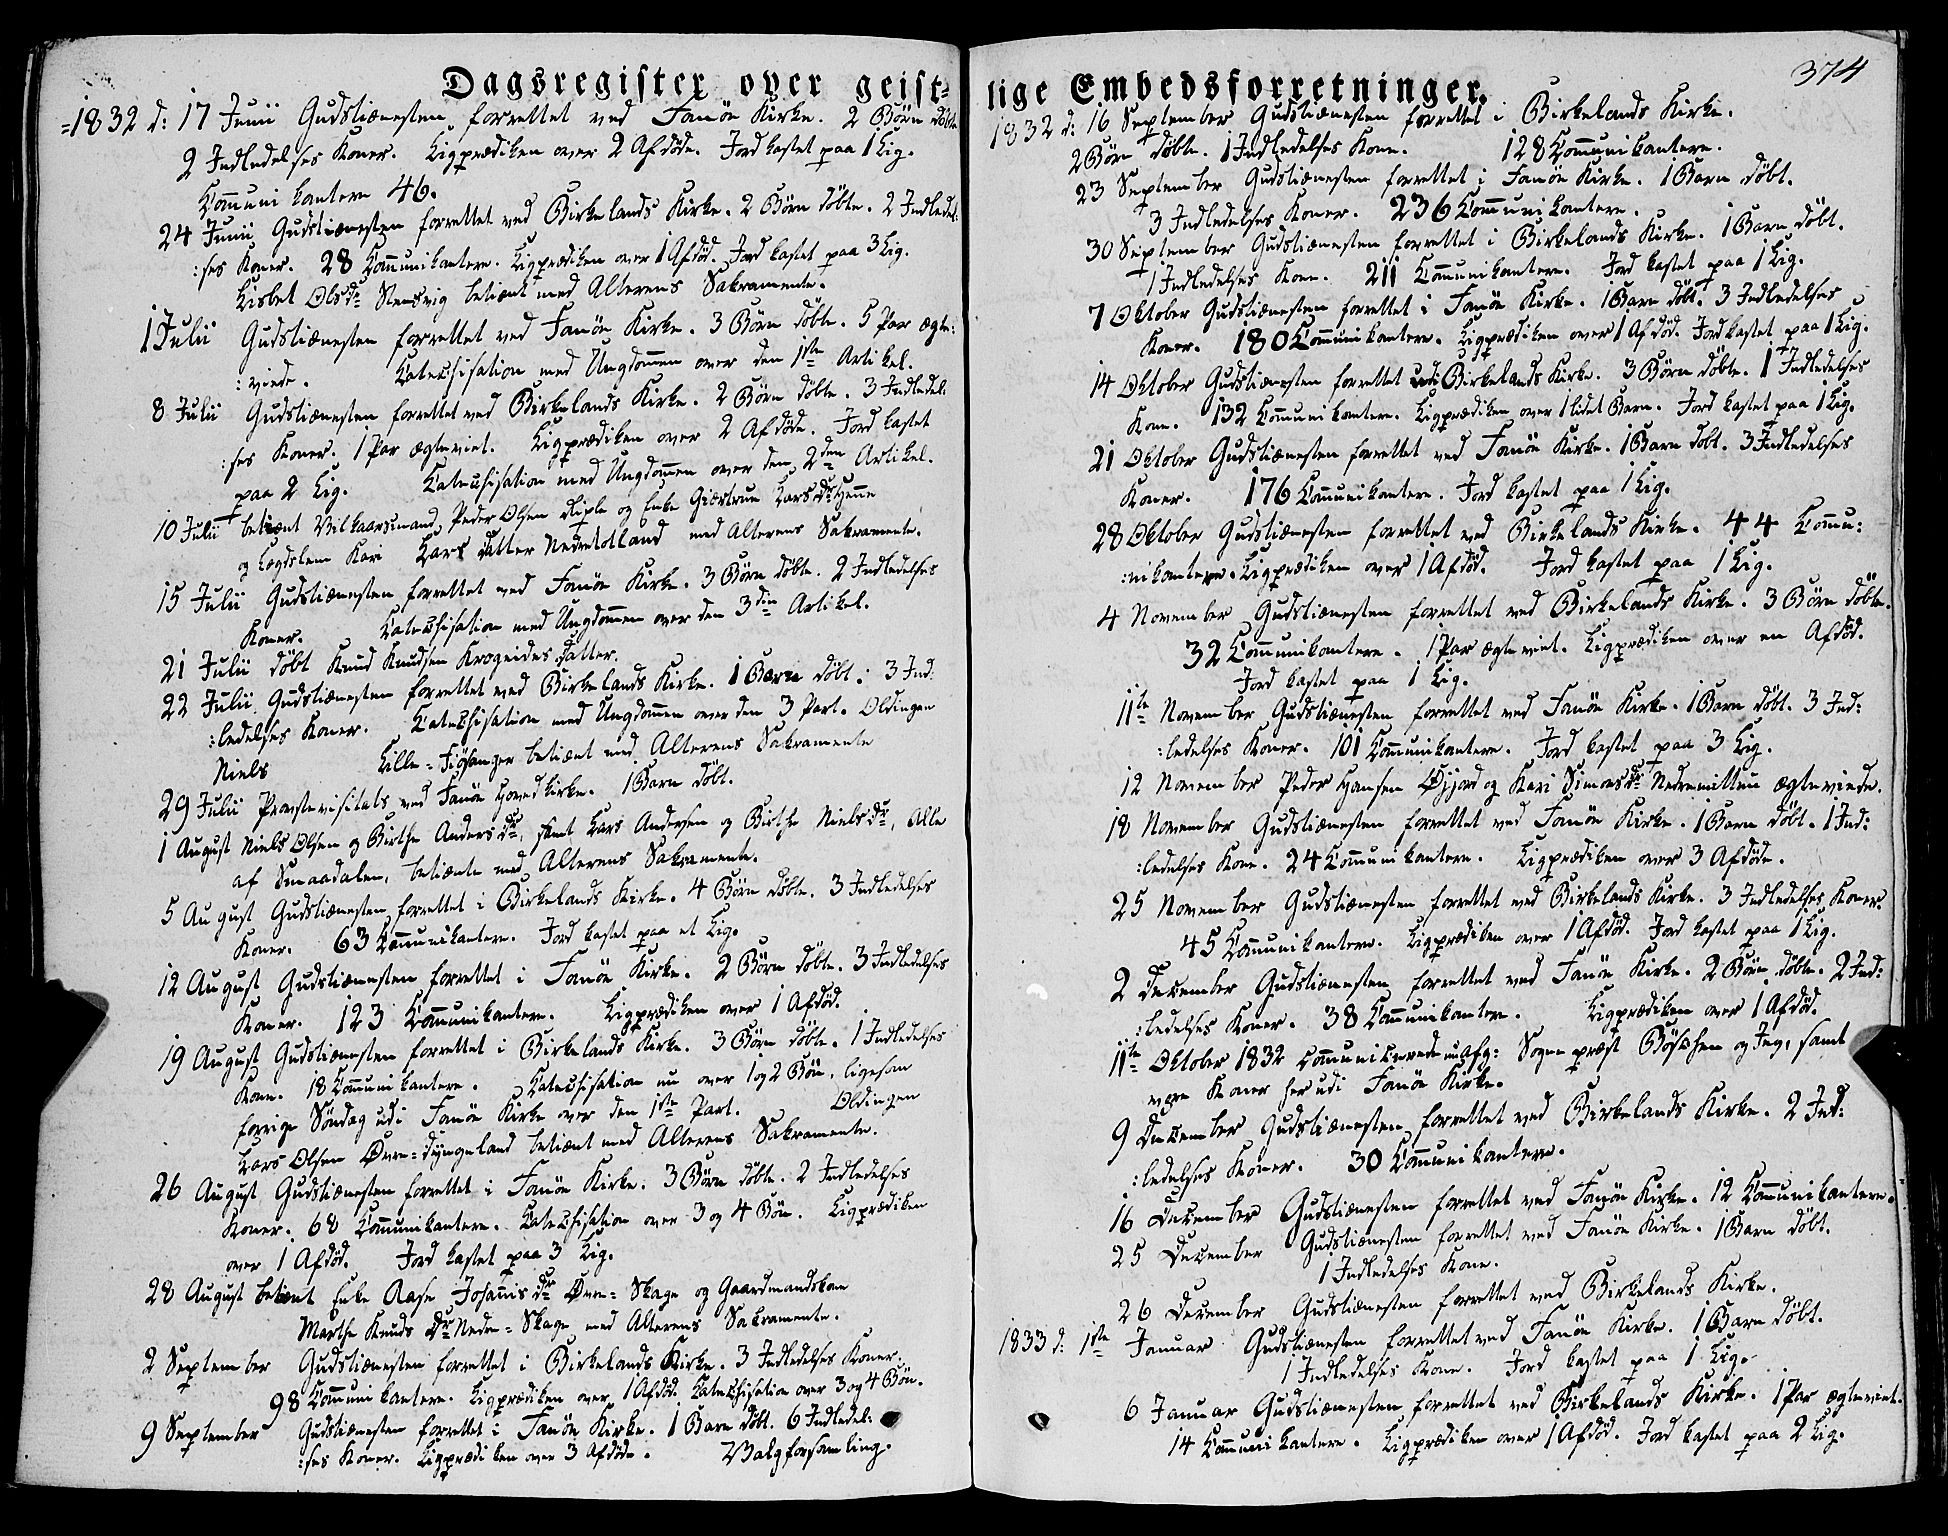 Dagsregister over geist=
=1832 d: 17 Junii Gudstiænesten forrettet ved Fanöe Kirke. 2 Börn döbte
2 Indledelses Koner. Ligprædiken over 2 Afdöde. Jord kastet paa 1 Lig.
Com̄unikantere 46.
24 Junii Gudstiænesten forrettet ved Birkelands Kirke. 2 Börn döbte. 2 Indledel:
:ses Koner. 28 Com̄unikantere. Ligprædiken over 1 Afdöd. Jord kastet paa 3 Lig.
Lisbet Olsdr Stensvig betiænt med Alterens Sakramente.
1 Julii Gudstiænesten forrettet ved Fanöe Kirke. 3 Börn döbte. 5 Par ægte:
:viede. Catechisation med Ungdom̄en over den 1ste Artikel.
8 Julii Gudstiænesten forrettet ved Birkelands Kirke. 2 Börn döbte. 3 Indledel:
:ses Koner. 1 Par ægteviet. Ligprædiken over 2 Afdöde. Jord kastet
paa 2 Lig. Catechisation med Ungdom̄en over den 2den Artikel.
10 Julii betiænt Vilkaarsmand Peder Olsen Riple og Enke Giærtrue Larsdr Henne
og Lægdslem Kari Larsdatter Nedretolland med Alterens Sakramente.
15 Julii Gudstiænesten forrettet ved Fanöe Kirke. 3 Börn döbte. 2 Indledelses
Koner. Catechisation med Ungdom̄en over den 3die Artikel.
21 Julii döbt Knud Knudsen Krogeides datter.
22 Julii Gudstiænesten forrettet ved Birkelands Kirke. 1 Barn döbt. 3 Ind:
:ledelses Koner. Catechisation med Ungdom̄en over den 3 Part. Oldingen
Niels Lille=Fiösanger betiænt med Alterens Sakramente
29 Julii Provstevisitats ved Fanöe Hovedkirke. 1 Barn döbt.
1 August Niels Olsen og Birthe Andersdr, samt Lars Andersen og Birthe Nielsdr, Alle
af Smaadalen, betiænte med Alterens Sakramente.
5 August Gudstiænesten forrettet i Birkelands Kirke. 4 Börn döbte. 3 Indledelses
Koner. 63 Com̄unikantere. Jord kastet paa et Lig.
12 August Gudstiænesten forrettet i Fanöe Kirke. 2 Börn döbte. 3 Indledelses
Koner. 123 Com̄unikantere. Ligprædiken over 1 Afdöd.
19 August Gudstiænesten forrettet i Birkelands Kirke. 3 Börn döbte. 1 Indledelses
Kone. 18 Com̄unikantere. Catechisation nu over 1 og 2 Bön, ligesom
forrige Söndag udi Fanöe Kirke over den 1ste Part. Oldingen
Lars Olsen Övre=dyngeland betiænt med Alterens Sakramente.
26 August Gudstiænesten forrettet i Fanöe Kirke. 3 Börn döbte. 2 Indledelses
Koner. 68 Com̄unikantere. Catechisation over 3 og 4 Bön. Ligprædiken
over 1 Afdöd. Jord kastet paa 3 Lig.
28 August betiænt Enke Aase Johanisdr Övre=Skage og Gaardmandskone
Marthe Knudsdr Nedre=Skage med Alterens Sakramente.
2 September Gudstiænesten forrettet i Birkelands Kirke. 3 Indledelses Koner.
98 Com̄unikantere. Ligprædiken over 1 Afdöd. Catechisation over 3 og 4 Bön.
9 September Gudstiænesten forrettet i Fanöe Kirke. 1 Barn döbt. 6 Indledel:
:ses Koner. Ligprædiken over 3 Afdöde. Valgforsamling.
lige Embedsforretninger.
374
1832 d: 16 September Gudstiænesten forrettet i Birkelands Kirke.
2 Börn döbte. 1 Indledelses Kone. 128 Com̄unikantere.
23 September Gudstiænesten forrettet i Fanöe Kirke. 1 Barn döbt.
3 Indledelses Koner. 236 Com̄unikantere.
30 September Gudstiænesten forrettet i Birkelands Kirke. 1 Barn döbt.
1 Indledelses Kone. 211 Com̄unikantere. Jord kastet paa 1 Lig.
7 Oktober Gudstiænesten forrettet i Fanöe Kirke. 1 Barn döbt. 3 Indledelses
Koner. 180 Com̄unikantere. Ligprædiken over 1 Afdöd. Jord kastet paa 1 Lig.
14 Oktober Gudstiænesten forrettet udi Birkelands Kirke. 3 Börn döbte. 1 Indledelses
Kone. 132 Com̄unikantere. Ligprædiken over 1 lidet Barn. Jord kastet paa 1 Lig.
21 Oktober Gudstiænesten forrettet ved Fanöe Kirke. 1 Barn döbt. 3 Indledelses
Koner. 176 Com̄unikantere. Jord kastet paa 1 Lig.
28 Oktober Gudstiænesten forrettet ved Birkelands Kirke. 44 Com̄u:
:nikantere. Ligprædiken over 1 Afdöd. Jord kastet paa 1 Lig.
4 November Gudstiænesten forrettet ved Birkelands Kirke. 3 Börn döbte.
32 Com̄unikantere. 1 Par ægteviet. Ligprædiken over en Afdöd.
Jord kastet paa 1 Lig.
11te November Gudstiænesten forrettet ved Fanöe Kirke. 1 Barn döbt. 3 Ind:
:ledelses Koner. 101 Com̄unikantere. Jord kastet paa 3 Lig.
12 November Peder Hansen Öjjord og Kari Simonsdr Nedremittun ægteviede.
18 November Gudstiænesten forrettet ved Fanöe Kirke. 1 Barn döbt. 1 Ind:
:ledelses Kone. 24 Com̄unikantere. Ligprædiken over 3 Afdöde.
25 November Gudstiænesten forrettet ved Birkelands Kirke. 3 Indledelses Koner.
45 Com̄unikantere. Ligprædiken over 1 Afdöd. Jord kastet paa 1 Lig.
2 December Gudstiænesten forrettet ved Fanöe Kirke. 2 Börn döbte. 2 Ind:
:ledelses Koner. 38 Com̄unikantere. Ligprædiken over 1 Afdöd.
11te Oktober 1832 Com̄unicerede Sogne præst og Jeg, samt
vore Koner her udi Fanöe Kirke.
9 December Gudstiænesten forrettet ved Birkelands Kirke. 2 Ind:
:ledelses Koner. 30 Com̄unikantere.
16 December Gudstiænesten forrettet ved Fanöe Kirke. 12 Com̄unikantere.
25 December Gudstiænesten forrettet ved Fanöe Kirke. 1 Barn döbt.
1 Indledelses Kone.
26 December Gudstiænesten forrettet ved Birkelands Kirke.
1833 d: 1ste Januar Gudstiænesten forrettet ved Fanöe Kirke. 1 Barn döbt.
1 Indledelses Kone. Jord kastet paa 1 Lig.
6 Januar Gudstiænesten forrettet ved Birkelands Kirke. 1 Par ægteviet.
14 Com̄unikantere. Ligprædiken over 1 Afdöd. Jord kastet paa 2 Lig.